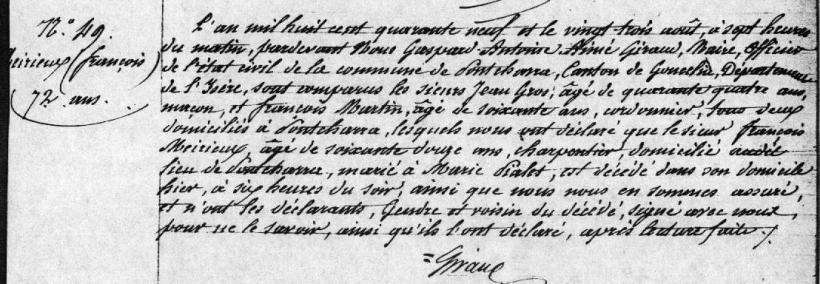 N.° 49.
Meirieux (françois)
72. ans.
L'an mil huit cent quarante neuf et le vingt trois août, à sept heures
du matin, pardevant Nous Gaspard Antoine Aimé Giraud, Maire, Officier
de l'état civil de la commune de Pontcharra, Canton de Goncelin, Département
de l'Isère, sont comparus les sieurs Jean Gros, âgé de quarante quatre ans,
maçon, et françois Martin, âgé de soixante ans, cordonnier, tous deux
domiciliés à Pontcharra, lesquels nous ont déclaré que le sieur françois
Meirieux, âgé de soixante douze ans, charpentier, domicilié audit
lieu de Pontcharra, marié à Marie Pialet, est décédé dans son domicile
hier, à six heures du soir, ainsi que nous nous en sommes assuré,
et n'ont les déclarants, Gendre et voisin du décédé, signé avec nous,
pour ne le savoir, ainsi qu'ils l'ont déclaré, après lecture faite./.
= Giraud